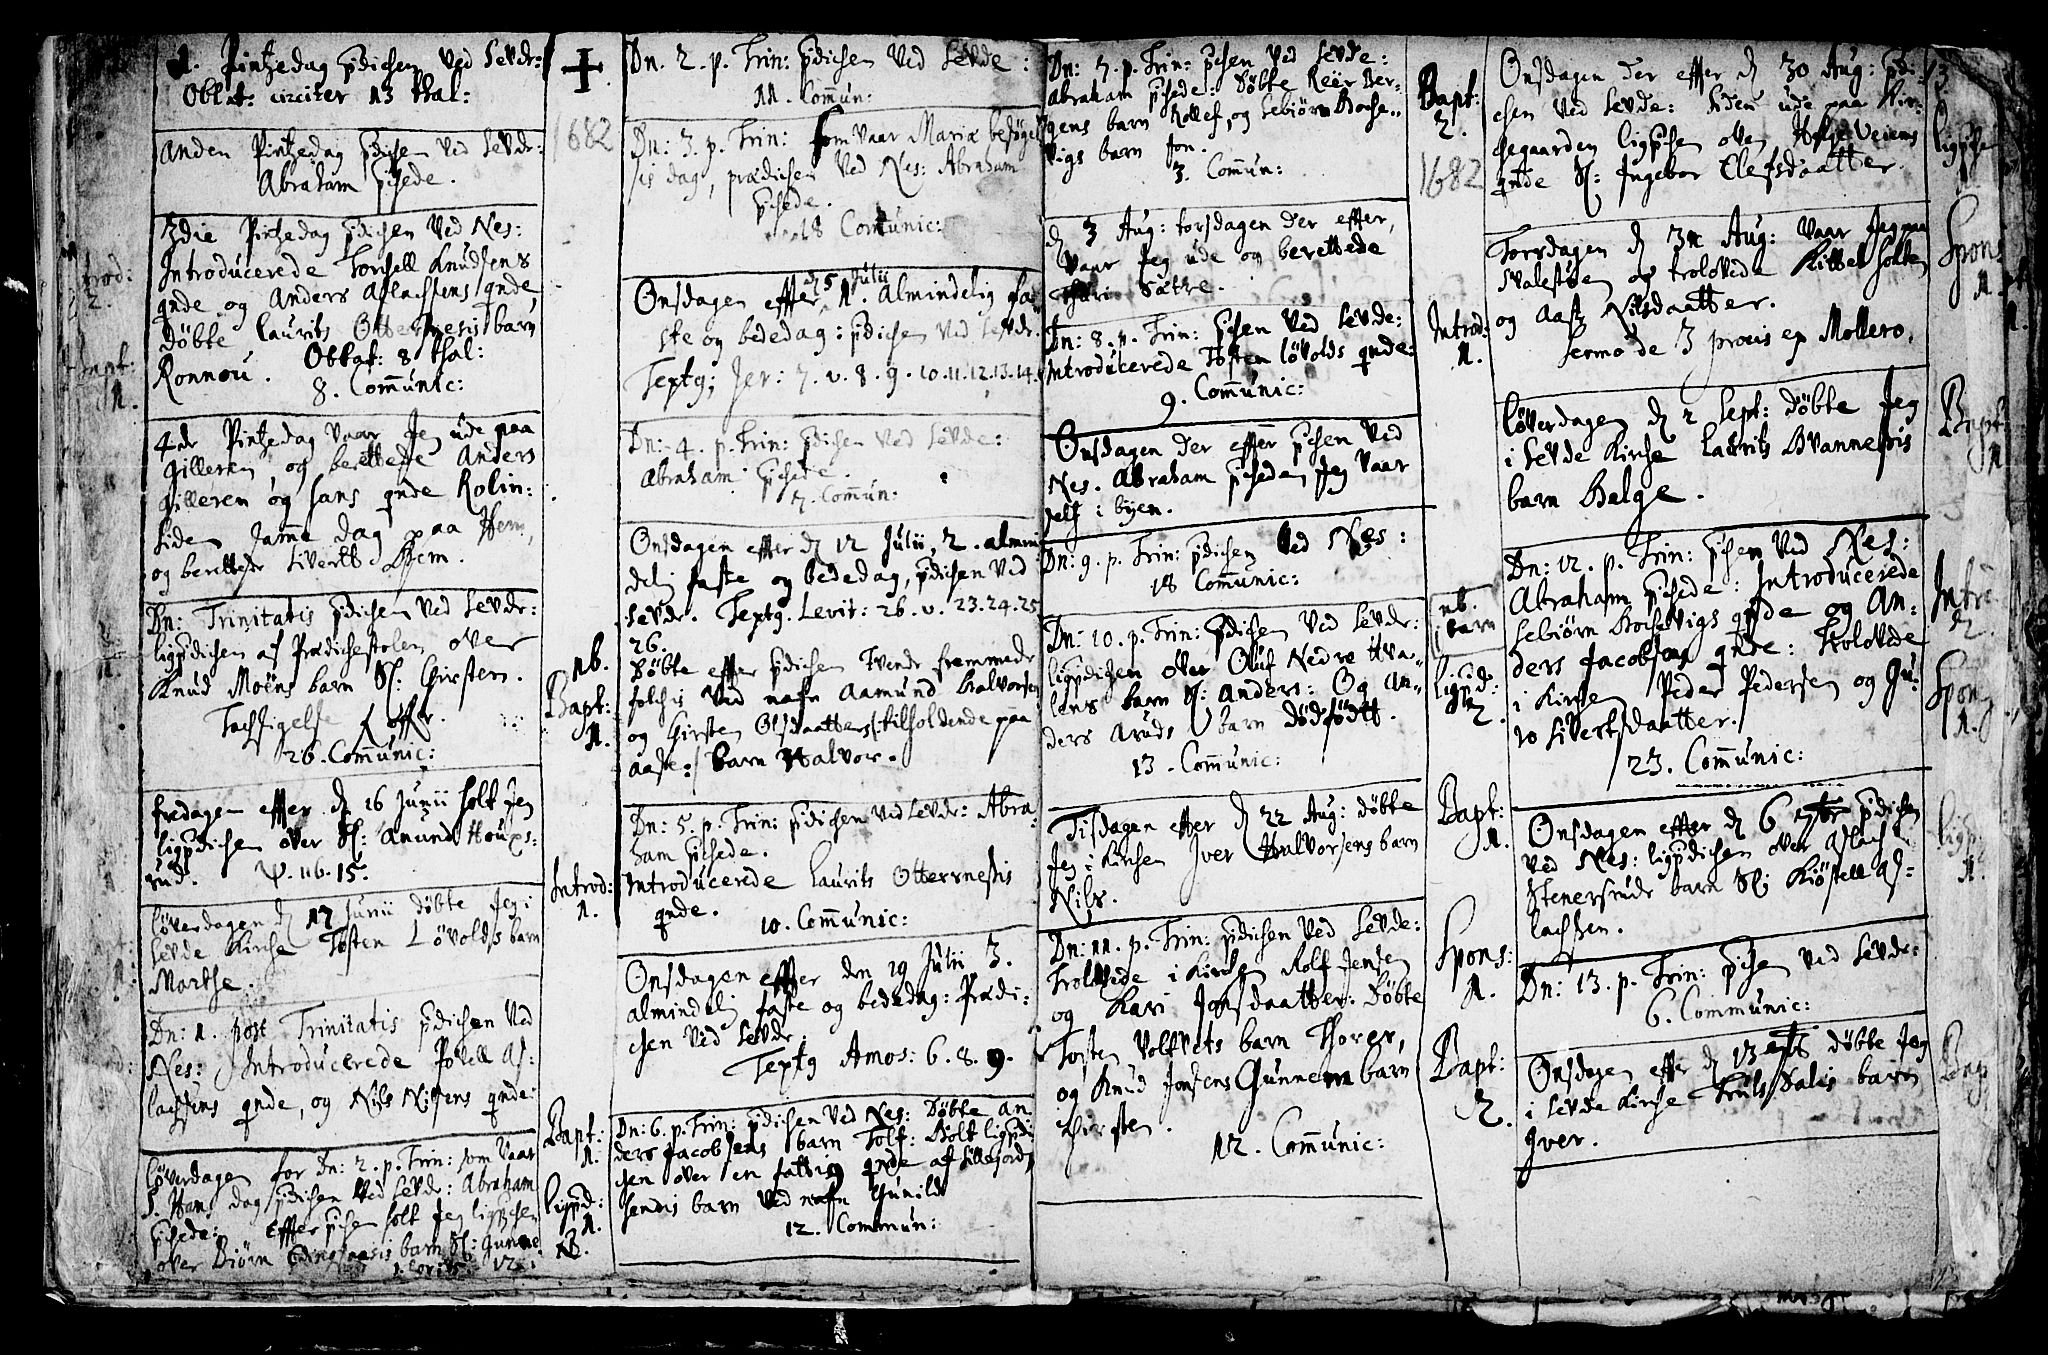 1. Pintzedag pdichen Ved Sevdr:
Oblat: circiter 13 thal:
Anden Pintzedag pdichen Ved Sevdr:
Abraham pichede.
3die Pintzedag pdichen Ved Nes:
Introducerede Torchell Knudsens
qnde og Anders Aslachsens qnde,
döbte Laurits Otternesis barn
Ronnou. Oblat: 8 thal:
8. Com̃unic:
4de Pintzedag Vaar Jeg ude paa
Gilleren og berettede Anders
Gilleren og hans qnde Rolin:
siden sam̃e dag paa
og berettede Sivertt
Dn: Trinitatis pdichen Ved Sevdr:
ligpdichen af Prædichestolen over
Knud Moëns barn Sl: Chirsten.
Tachsigelse offer.
26. Com̃unic:
fredagen effter d 16 Junii holt Jeg
ligpdichen over Sl: Anund Houxs:
rud. ψ. 116. 15.
Löverdagen d 17 Junii döbte Jeg i
Sevde Kirche Tosten Lövolds barn
Marthe.
Dn: 1. post Trinitatis pdichen Ved
Nes: Introducerede Povell As:
lachsens qnde, og Nils Nilsens qnde:
Löverdagen for Dn: 2. p. Trin: som Vaar
S. Hans dag pdichen Ved Sevdr: Abraham
pichede: effter pichen holt Jeg ligpichen
over Biörn barn Sl: Gunne
12.
1682
nb.
Bapt:
1.
Introd:
1.
Bapt:
1.
ligpd:
1.
NB.
Dn. 2. p. Trin: pdichen Ved Sevde:
11. Com̃un:
Dn: 3. p. Trin: som Vaar Mariæ besögel
sis dag, prædichen Ved Nes: Abraham
pichede.
18 Com̃unic:
d 5 Julii
Onsdagen effter, 1. Almindelig fa
ste og bededag: pdichen Ved Sevdr.
Textg; Jer: 7. v. 8. 9. 10. 11. 12. 13. 14.
Dn: 4. p. Trin: pdichen Ved Sevde:
Abraham pichede.
7. Com̃un:
Onsdagen effter d 12 Julii, 2. almin
delig faste og bededag, pdichen Ved
Sevdr. Textg. Levit: 26. v. 23. 24. 25
26.
Döbte effter pdichen tvende fremmede
folchis Ved nafn Aamund Halvorsen
og Chirsten Olsdaatters (tilholdende paa
Aaste:) barn Halvor.
Dn: 5. p. Trin: pdichen Ved Sevdr: Abra:
ham pichede.
Introducerede Laurits Otternessis
qnde.
10. Com̃unic:
Onsdagen effter den 19 Julii 3.
almindelig faste og bededag: Prædi:
chen Ved Sevdr
Textg Amos: 6. 8. 9.
Dn: 6. p. Trin: pdichen Ved Nes: Döbte An
ders Jacobsens barn Tolf: Holt ligpdi
chen over en fattig qnde af Sillejords
hendis barn Ved nafn Gunild
12. Commun:
Dn: 7. p. Trin: pchen Ved Sevde:
Abraham pchede: Döbte Reër Ber-
gens barn Rollef, og Sebiörn Boche
vigs barn Jon.
3. Com̃un:
d 3 Aug: torsdagen der effter,
Vaar Jeg ude og berettede
Thori Sætre.
Dn: 8. p. Trin: pchen Ved Sevde:
Introducerede Tosten Lövolds qnde:
9. Com̃unic:
Onsdagen der effter pchen Ved
Nes. Abraham pchede, Jeg Vaar
self i byen.
Dn: 9. p. Trin: pdichen Ved Nes:
18 Com̃unic:
Dn: 10. p. Trin: pdichen Ved Sevdr:
ligpdichen over Oluf Nedre Hva
lens barn Sl: Anders: Og An
ders Aruds barn dödfödtt.
13. Com̃unic:
Tisdagen effter d 22 Aug: döbte
Jeg i Kirchen Iver Halvorsens barn
Nils.
Dn: 11. p. Trin: pdichen Ved Sevde:
Trolovede i Kirchen Rolf Jensen
og Kari Jonsdaatter: Döbte
Tosten Volfvets barn Thorer,
og Knud Jonsens Gunnem barn
Chirsten.
12. Com̃unic:
Bapt:
2.
1682
Introd:
1.
nb.
barn
ligpd:
2.
Bapt:
1.
Spons:
1.
Bapt:
2.
Onsdagen der effter d 30 Aug: pdi
chen Ved Sevde: Siden ude paa Kir:
chegaarden ligpchen over
qnde Sl: Ingebor Elefsdaatter.
Torsdagen d 31 Aug: Vaar Jeg paa
Svalestöen og trolovede Kittel holten
og Aase Nilsdaatter.
Sermo de 3 prœis ex Mollero.
Löverdagen d 2 Sept: döbte Jeg
i Sevde Kirche Laurits Svannessis
barn Helge.
Dn: 12. p. Trin: pchen Ved Nes:
Abraham pchede: Introducerede
Sebiörn Bochevigs qnde og An:
ders Jacobsens qnde: Trolovede
i Kirchen Peder Pedersen og Gu:
ro Sivertsdaatter.
23. Com̃unic:
Onsdagen effter d 6 7br pdichen
Ved Nes: ligpdichen over Aslach
Stenersruds barn Sl: Kiöstell As-
lachsen.
Dn: 13. p. Trin: pchen Ved Sevdr:
6. Communic:
Onsdagen effter d 13 döbte Jeg
i Sevde Kirche Truls Dalis barn
Iver.
13
ligpche
Spons
1
Bapt
1
Intro
2.
Spons
1.
ligp
1.
Bap